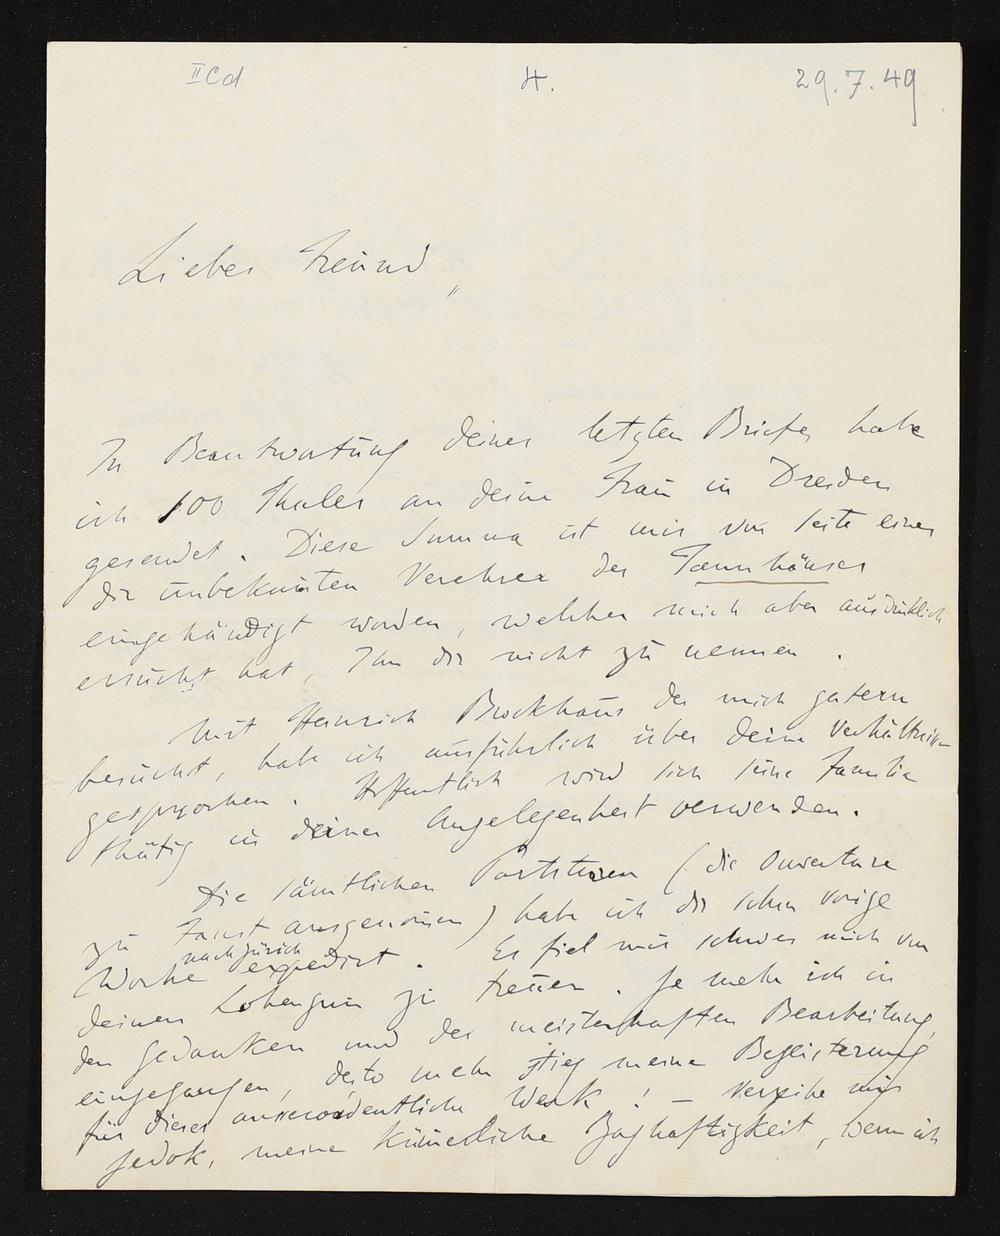 II Cd 4. 29.7.49
Lieber Freund,
In Beantwortung deines letzten Briefes habe
ich 100 Thaler an deine Frau in Dresden
gesendet. Diese Summa ist mir von Seite eines
dir unbekannten Verehrer des Tannhäuser
eingehändigt worden, welcher mich aber ausdrüklich
ersucht hat, Ihn dir nicht zu nennen.
Mit Heinrich Brockhaus der mich gestern
besucht, habe ich ausführlich über deine Verhältnisse
gesprochen. Hoffentlich wird sich seine Familie
thätig in deiner Angelegenheit verwenden.
Die sämtlichen Partituren (die Ouverture
zu Faust ausgenomen) habe ich dir schon vorige
Woche nach Zürich expedirt. Es fiel mir schwer mich von
deinem Lohengrin zu treñen. Je mehr ich in
den Gedanken und der meisterhaften Bearbeitung
eingegangen, desto mehr stieg meine Begeisterung
für dieses ausserordentliche Werk! – Verzeihe mir
jedok, meine kümerliche Zaghaftigkeit, wenn ich